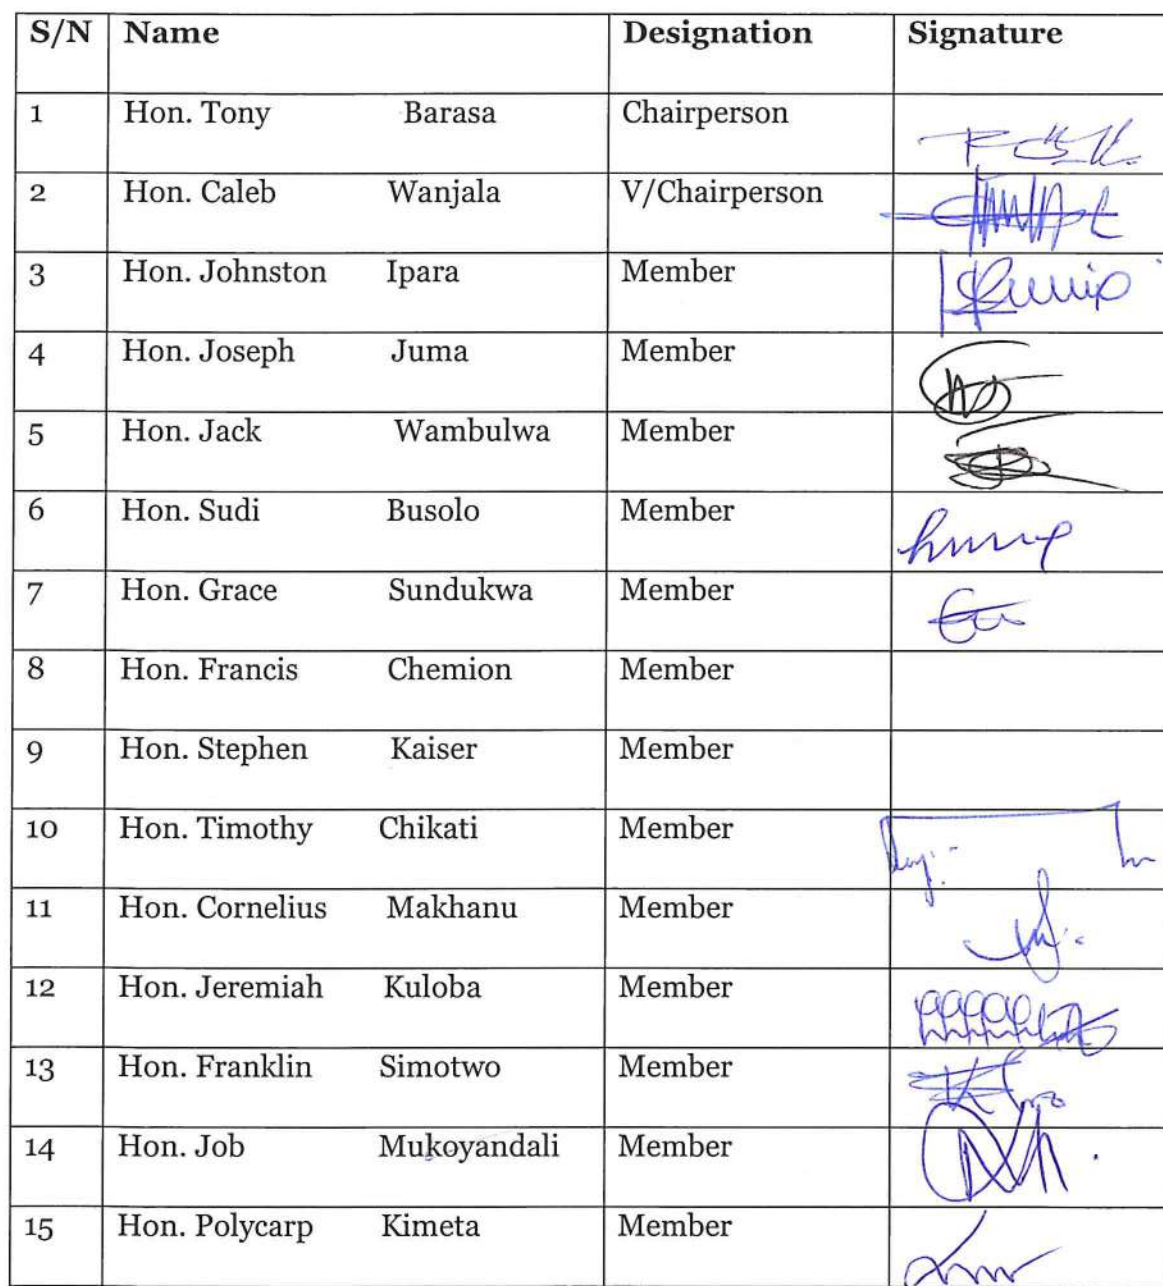 S/N Name Designation Signature
1 Hon. Tony Barasa Chairperson
2 Hon. Caleb Wanjala V/Chairperson
3 Hon. Johnston Ipara Member
4 Hon. Joseph Juma Member
5 Hon. Jack Wambulwa Member
6 Hon. Sudi Busolo Member
7 Hon. Grace Sundukwa Member
8 Hon. Francis Chemion Member
9 Hon. Stephen Kaiser Member
10 Hon. Timothy Chikati Member
11 Hon. Cornelius Makhanu Member
12 Hon. Jeremiah Kuloba Member
13 Hon. Franklin Simotwo Member
14 Hon. Job Mukoyandali Member
15 Hon. Polycarp Kimeta Member